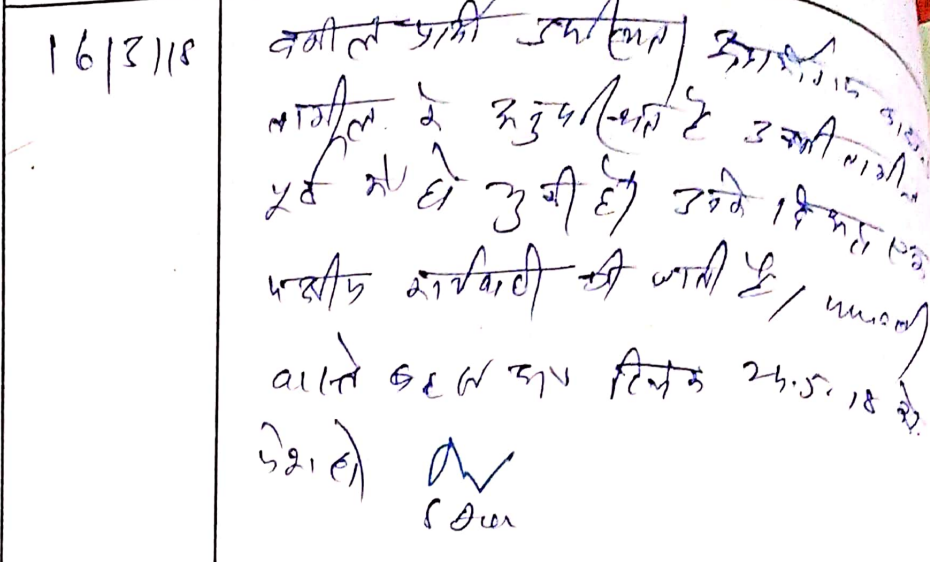 16/3/18 वकील प्रार्थी उपस्थित। अप्रार्थीगण बाद
तामील के अनुपस्थित है उनकी तामील
पूर्व में हो चुकी है। उनके विरूद्ध एक
पक्षीय कार्यवाही की जाती है। पत्रावली
वास्ते बहस अन्य दिनांक 24.5.18 को
पेश हो।
SDM